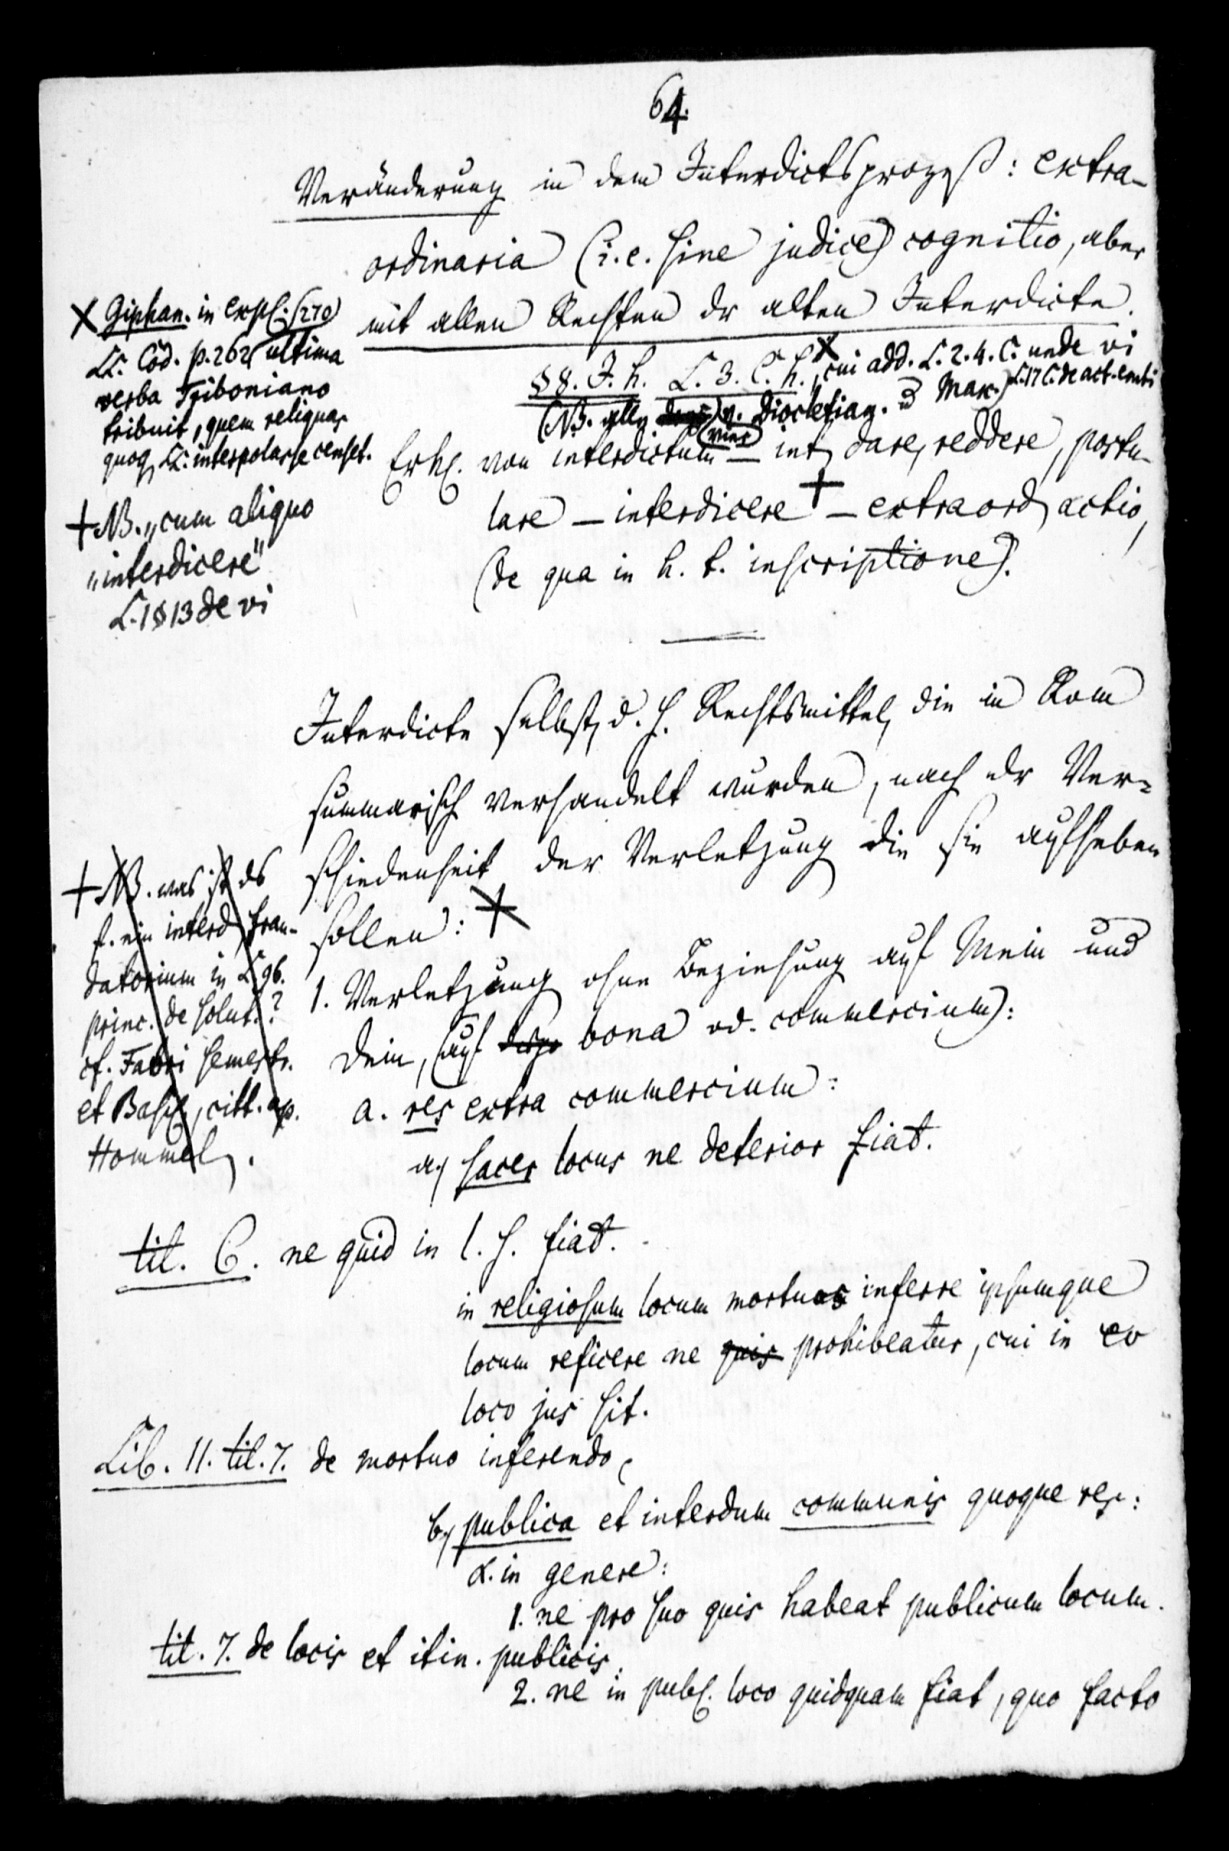 64.
Veränderung in dem Interdictsprozeß: extra-
ordinaria (i.e. sine judice) cognitio, aber
mit allen Rechten dr alten Interdicte.
§ 8. J. h. L. 3. C. h. X, cui add. L. 2. 4. C. unde vi
L. 17 C. de act. emti
(NB. alle v. Diocletian. u Max.)
Erkl. von interdictum — int. dare, reddere, postu-
lare — interdicere + — extraord. actio,
(de qua in h. t. inscriptione).
X Giphan. in expl.
LL. Cod. p. 262 ultima
verba Triboniano
tribuit, quem reliquas
quoq. LL. interpolasse censet.
+ NB. „cum aliquo
„interdicere"
L. 1 § 13 de vi
Interdicte selbst, d. h. Rechtsmittel, die in Rom
summarisch verhandelt wurden, nach dr Ver-
schiedenheit der Verletzung die sie aufheben
sollen: +
+ NB. was ist ds
f. ein interd. frau-
datorium in L. 96.
princ. de solut.?
cf. Fabri semestr.
et Basil., citt. ap.
Hommel.
1. Verletzung ohne Beziehung auf Mein und
Dein, (auf bona od. commercium):
a. res extra commercium:
a.) sacer locus ne deterior fiat.
tit. 6. ne quid in l. s. fiat.
in religiosum locum mortuos inferre ipsumque
locum reficere ne quis prohibeatur, cui in eo
loco jus sit.
Lib. 11. tit. 7. de mortuo inferendo.
b.) publica et interdum communis quoque res:
α. in genere:
1. ne pro suo quis habeat publicum locum.
tit. 7. de locis et itin. publicis.
2. ne in publ. loco quidquam fiat, quo facto